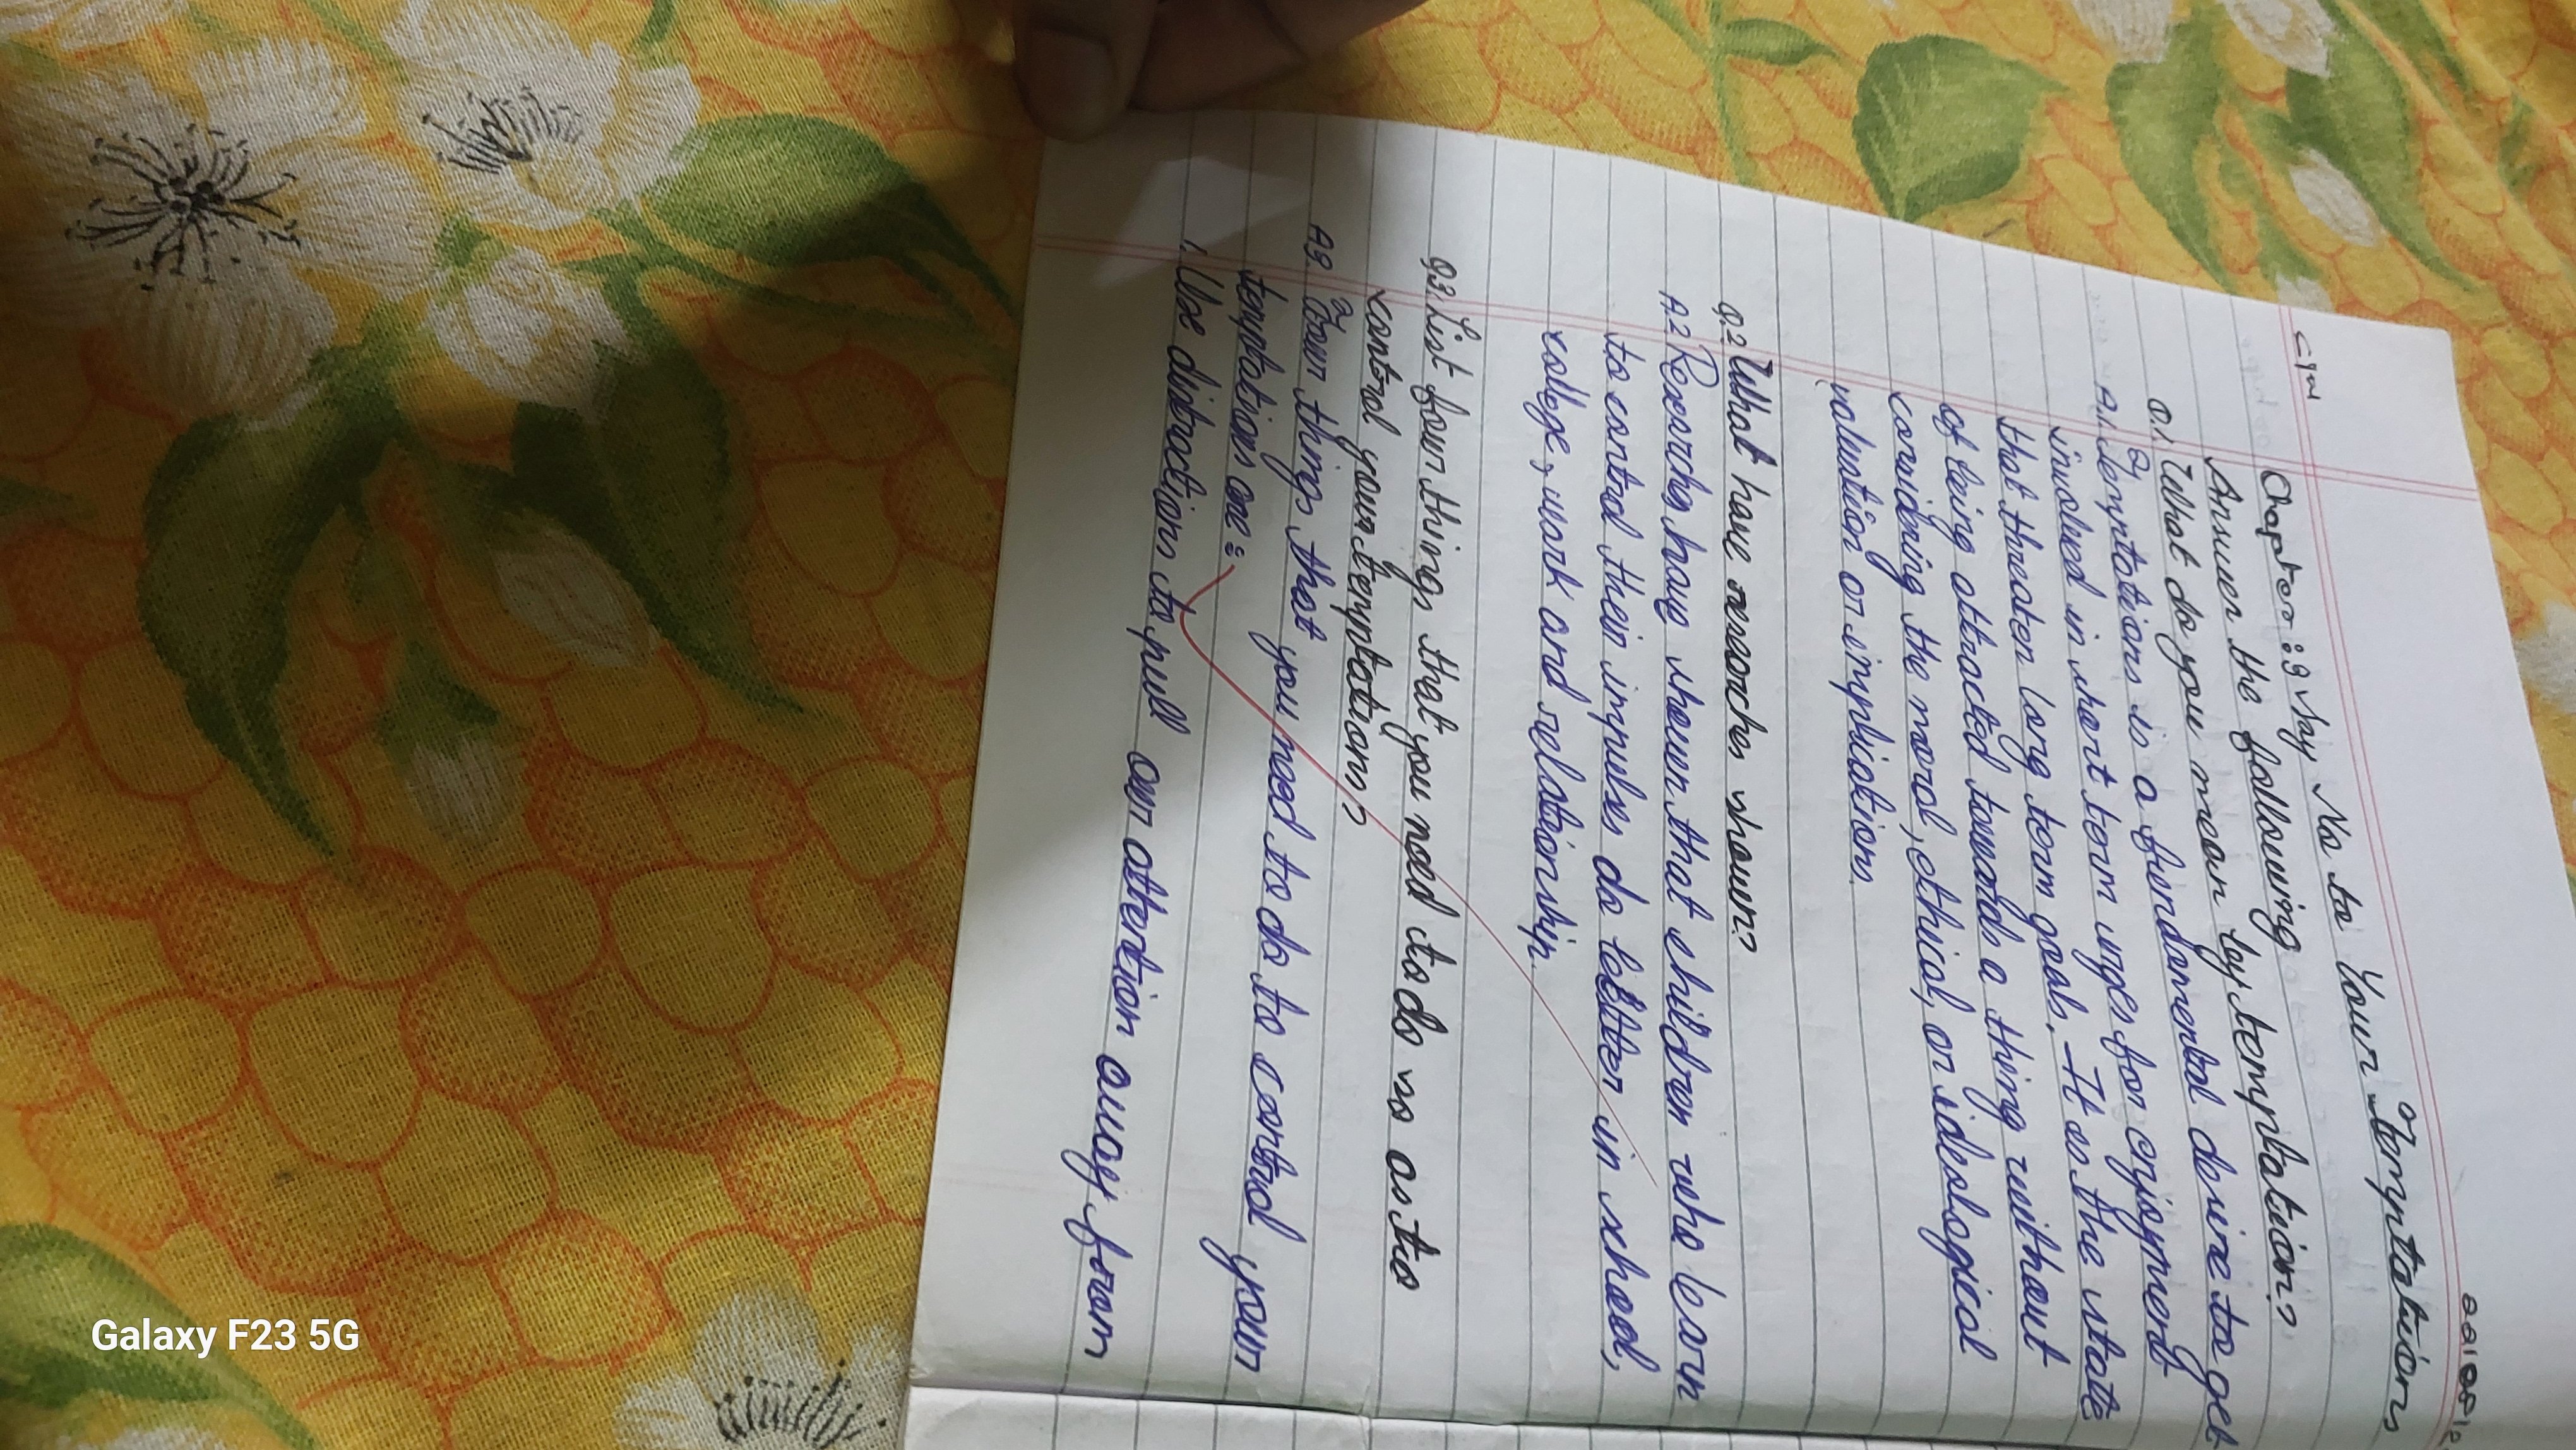 C.W
Chapter : 9 Say No to Your Temptations
Answer the following
Q.1. What do you mean by temptation?
A.1. Temptations is a fundamental desire to get
involved in short term urges for enjoyment
that threaten long term goals. It is the state
of being attracted towards a thing without
considering the moral, ethical, or ideological
valuation or implications.
Q.2 What have researches shown?
A.2 Researchs have shown that children who learn
to control their impulses do better in school,
college, work and relationship.
Q3. List four things that you need to do so as to
control your temptations?
A3. Four things that you need to do to control your
temptations are :
1. Use distractions to pull our attention away from
Galaxy F23 5G